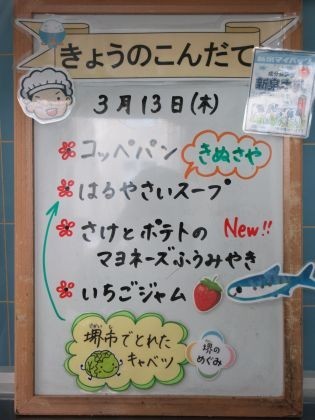 きょうのこんだて
3月13日(木)
コッペパン
きぬさや
はるやさいスープ
さけとポテトの
マヨネーズふうみやき
New!!
いちごジャム
堺市でとれた
キャベツ
堺の
めぐみ